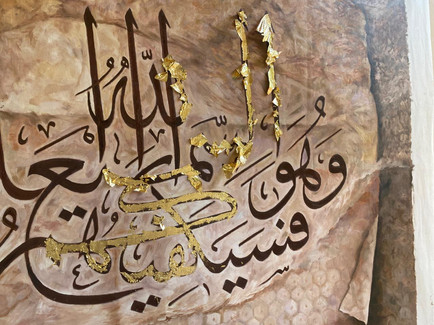 فسيكفيكهم الله
وهو السميع